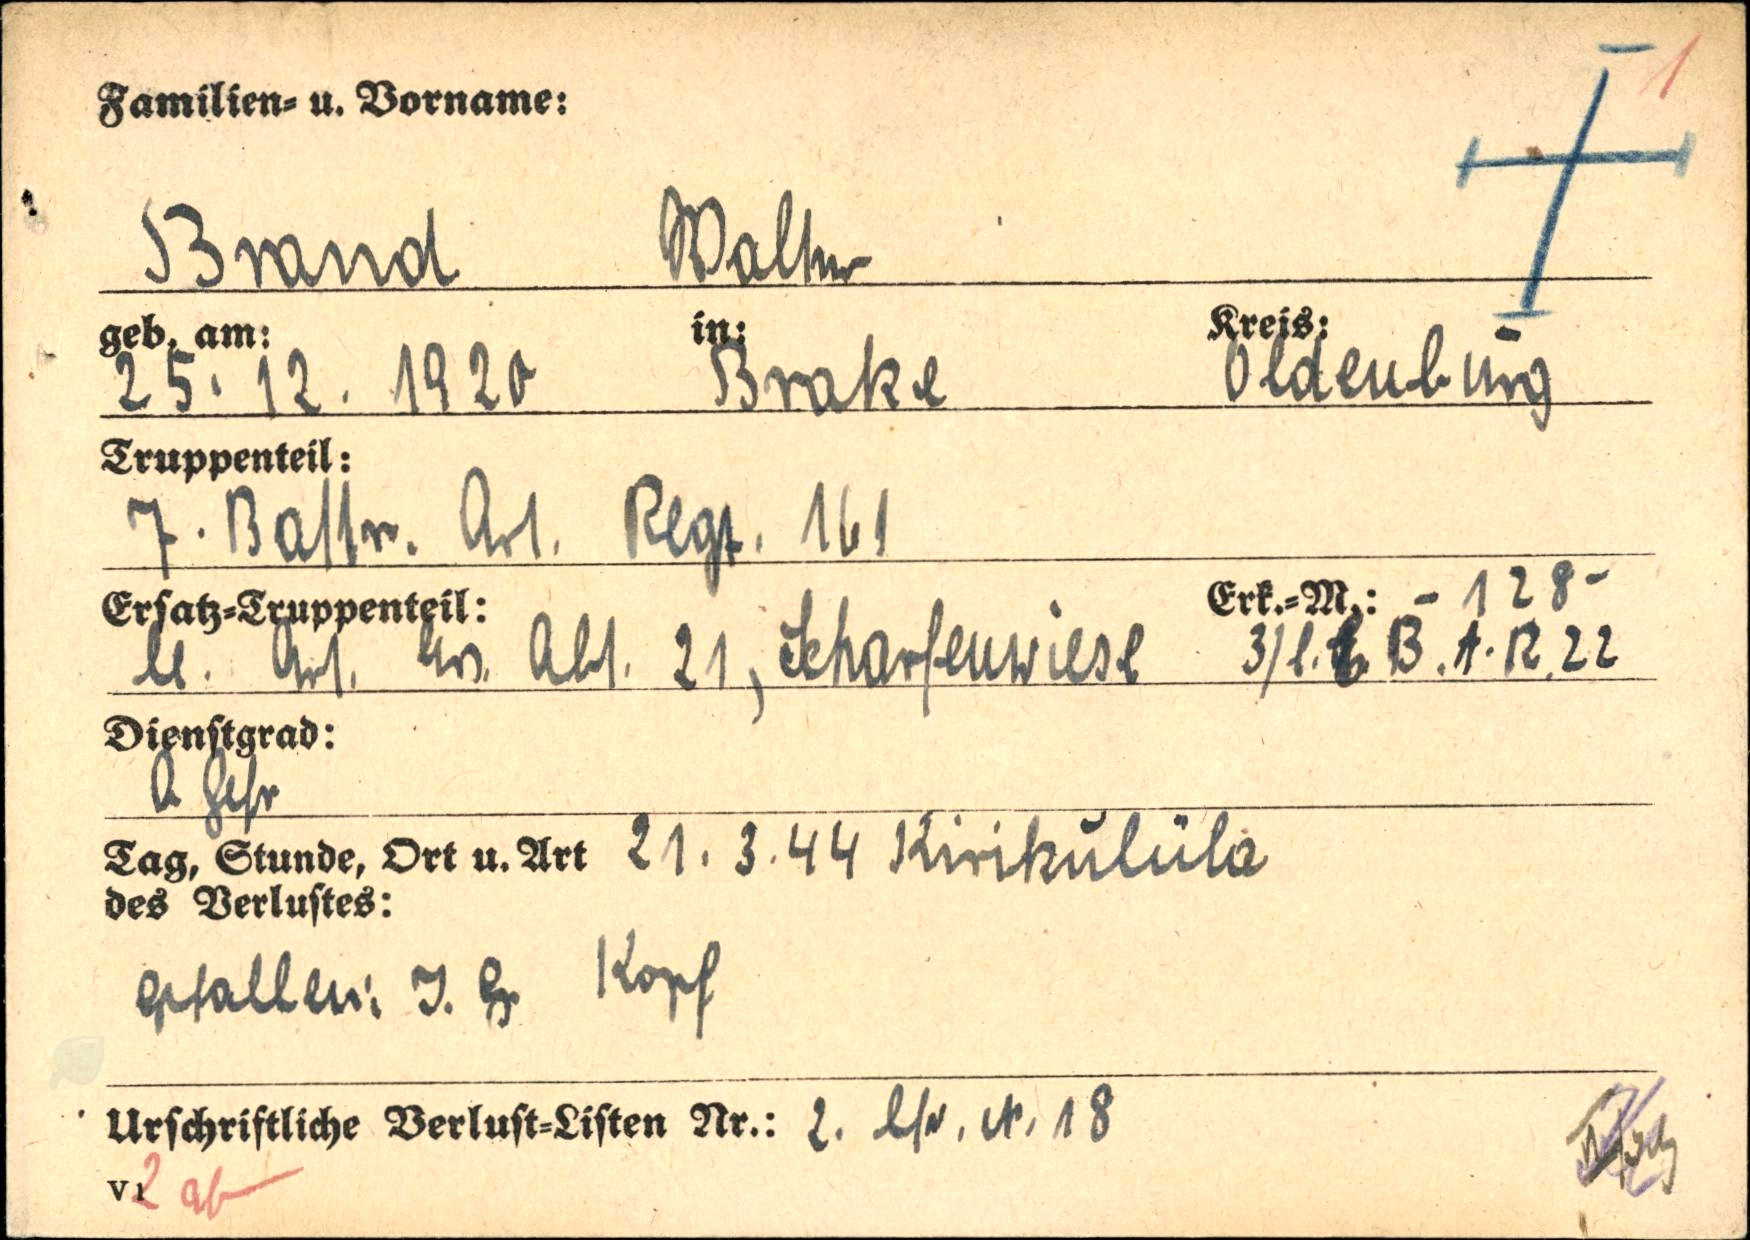 1
Familien- u. Vorname:
Brand Walter
geb. am: in: Kreis:
25. 12. 1920 Brake Oldenburg
Truppenteil:
7. Battr. Art. Regt. 161
Ersatz-Truppenteil: Erk.-M.: - 128 -
Art. Ers. Abt. 21, Scharfenwiese 3/l. B.A.R. 22
Dienstgrad:
O Gefr
Tag, Stunde, Ort u. Art 21. 3. 44 Kirikuküla
des Verlustes:
gefallen: I. G. Kopf
Urschriftliche Verlust-Listen Nr.: 2. 18
V 1 2 ab